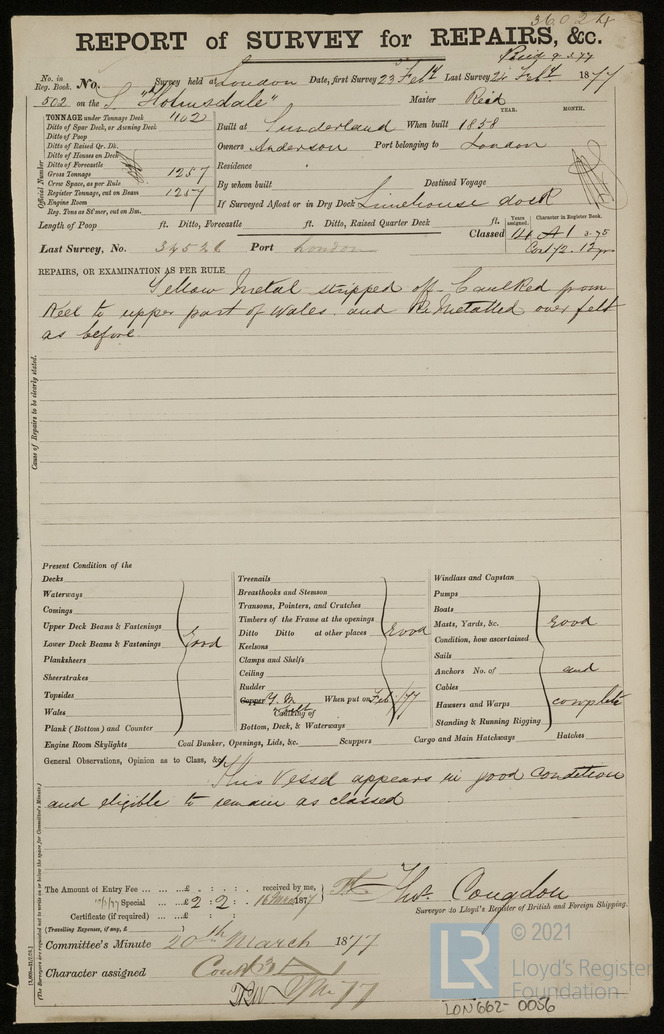 36024
REPORT of SURVEY for REPAIRS, &c.
No. in Reg. Book. No. Survey held at London Date, first Survey 23 Feby Last Survey 24 Feby 1877
502 on the S. "Holmsdale" Master Reid
YEAR. MONTH.
TONNAGE under Tonnage Deck 1102
Ditto of Spar Deck, or Awning Deck
Ditto of Poop
Ditto of Raised Qr. Dk.
Ditto of Houses on Deck
Ditto of Forecastle
Gross Tonnage 1257
Crew Space, as per Rule
Register Tonnage, cut on Beam 1257
Engine Room
Reg. Tons as St'mer, cut on Bm.
Official Number
Built at Sunderland When built 1858
Owners Anderson Port belonging to London
Residence
By whom built Destined Voyage
If Surveyed Afloat or in Dry Dock Limehouse dock
Length of Poop ft. Ditto, Forecastle ft. Ditto, Raised Quarter Deck ft.
Years assigned. Character in Register Book.
Classed 14 A1 3.75
Cont 72. 12 yrs
Last Survey, No. 34528 Port London
REPAIRS, OR EXAMINATION AS PER RULE
Yellow Metal stripped off. Caulked from
Keel to upper part of Wales. and Re Metalled over felt
as before.
Cause of Repairs to be clearly stated.
Present Condition of the
Decks
Waterways
Comings
Upper Deck Beams & Fastenings
Lower Deck Beams & Fastenings Good
Planksheers
Sheerstrakes
Topsides
Wales
Plank (Bottom) and Counter
Treenails
Breasthooks and Stemson
Transoms, Pointers, and Crutches
Timbers of the Frame at the openings
Ditto Ditto at other places Good
Keelsons
Clamps and Shelfs
Ceiling
Rudder
Copper Y. M When put on Feb. /77
Caulking of
Bottom, Deck, & Waterways
Windlass and Capstan
Pumps
Boats
Masts, Yards, &c. Good
Condition, how ascertained
Sails
Anchors No. of and
Cables
Hawsers and Warps complete
Standing & Running Rigging
Engine Room Skylights Coal Bunker, Openings, Lids, &c. Scuppers Cargo and Main Hatchways Hatches
General Observations, Opinion as to Class, &c.
This Vessel appears in good condition
and eligible to remain as classed
The Amount of Entry Fee £ : : received by me,
Special £ 2 : 2 : 16 Mar 1877
Certificate (if required) £ : :
(Travelling Expenses, if any, £ )
Thos. Congdon
Surveyor to Lloyd's Register of British and Foreign Shipping.
Committee's Minute 20th March 1877
Character assigned
(The Surveyors are requested not to write on or below the space for Committee's Minute.)
LR
© 2021
Lloyd's Register
Foundation
LON662-0056